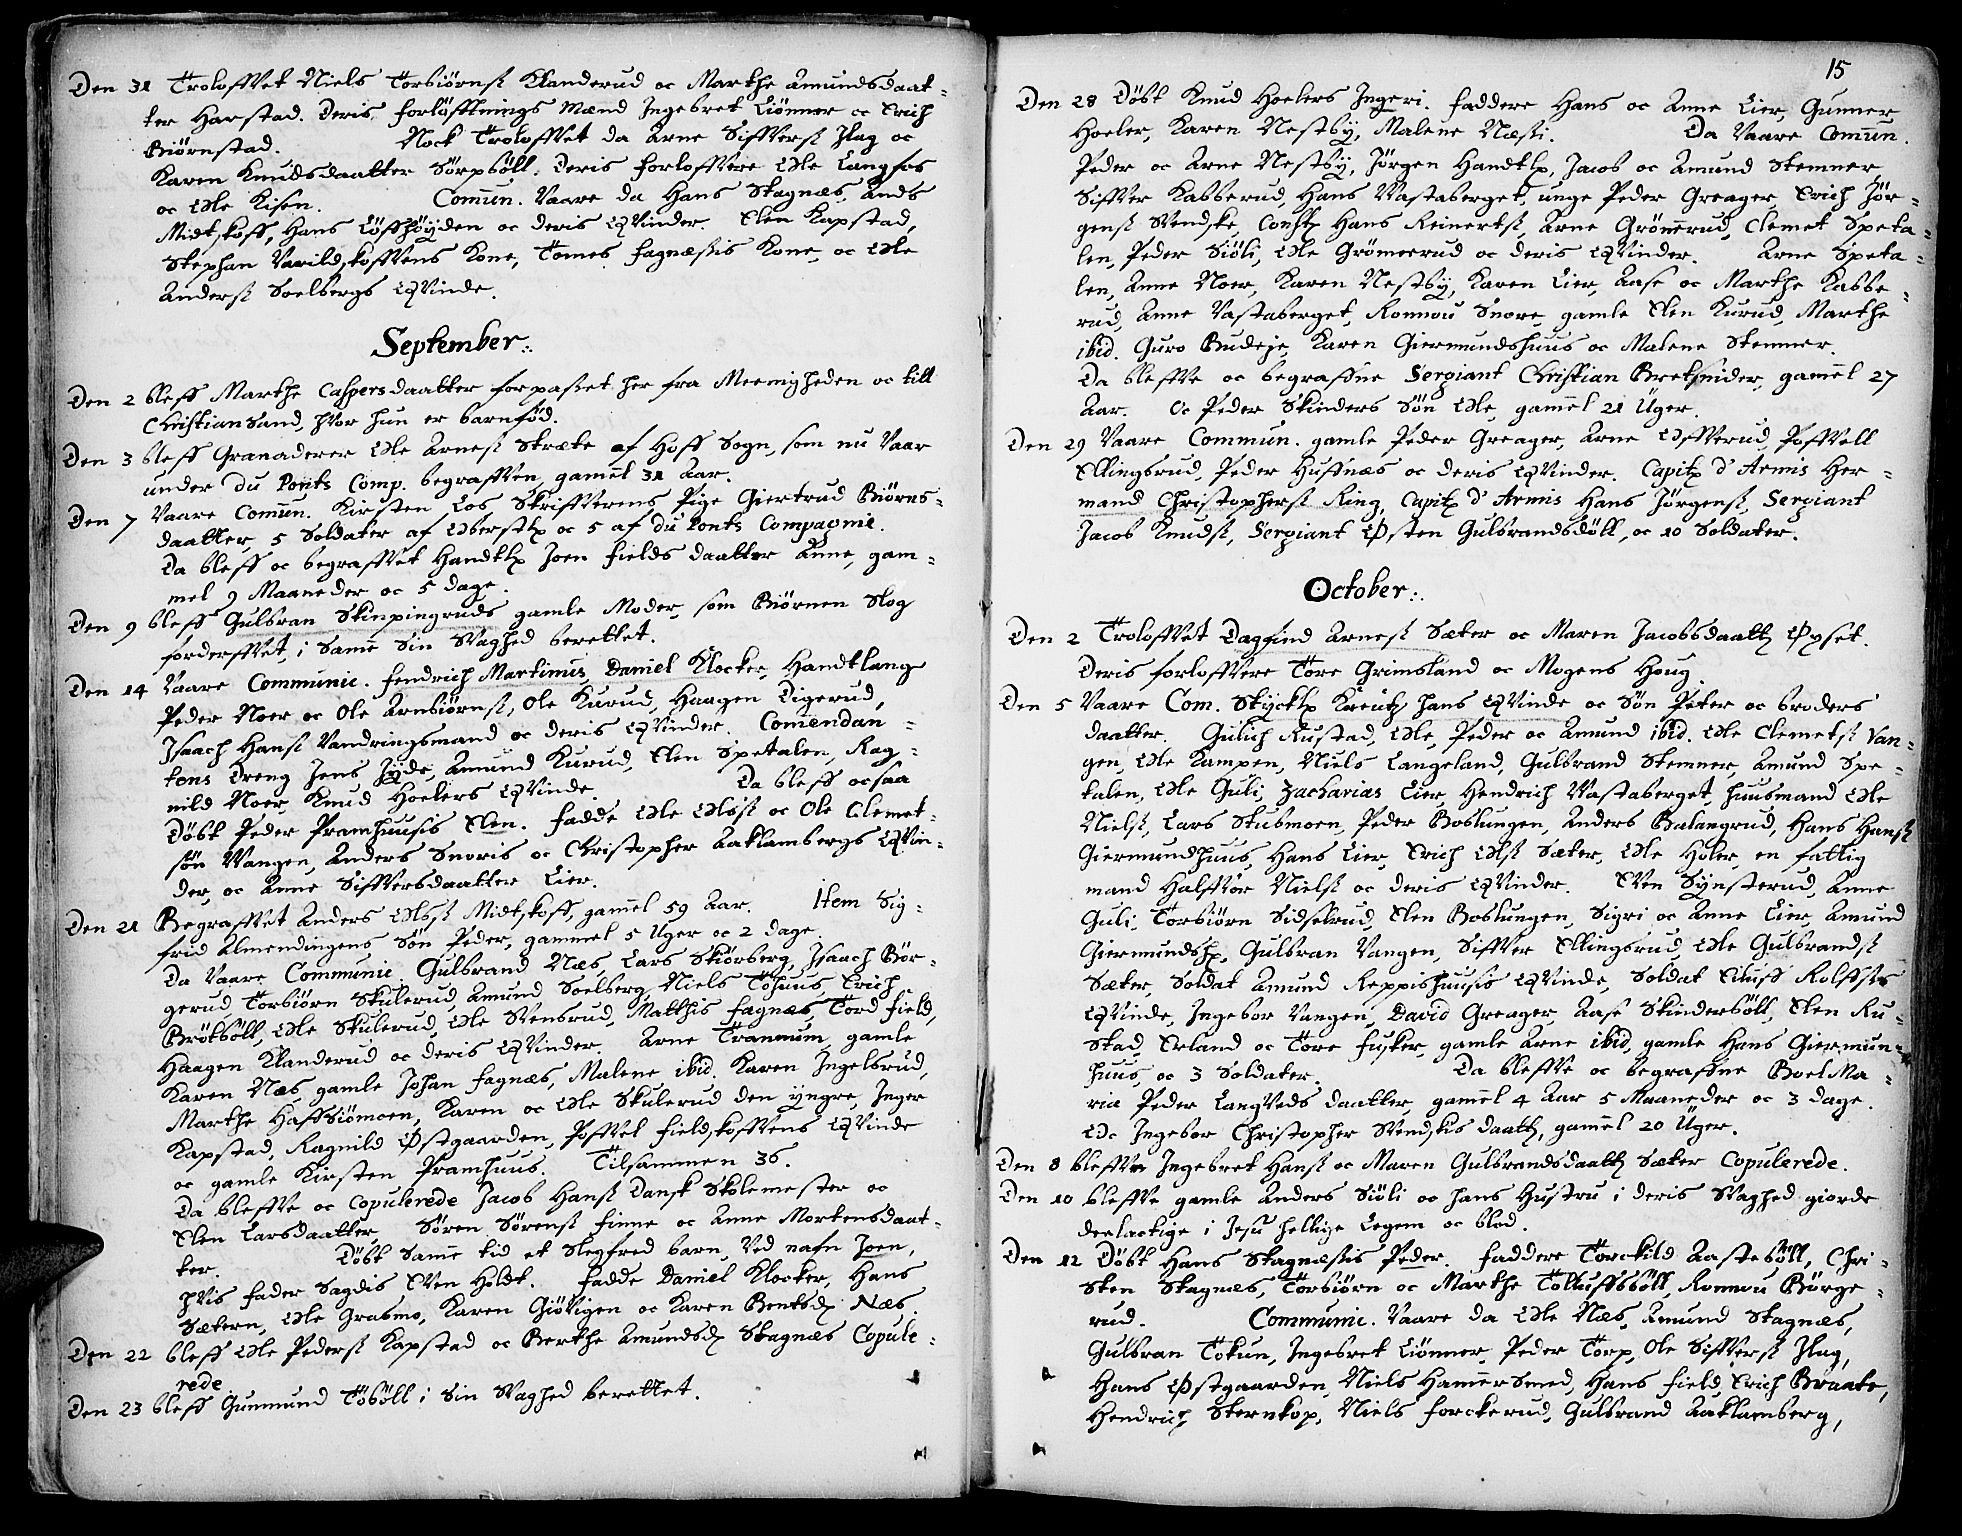 Den 31 Troloffvet Niels Torbiørns: Klanderud oc Marthe Amundsdaat-
ter Harstad. Deris forløfftnings Mænd Ingebret Liønner oc Erich
Biørnstad. Nock Troloffvet da Arne Siffvers: Flug oc
Karen Knudsdaatter Sørpbøll. Deris forloffvere Ole Langsos
oc Ole Kisen. Comun. Vaare da Hans Skagnæs, Ands
Midtskoff, Hans Löffhöyden oc deris Qvinder. Elen Kapstad,
Stephan Varildskoffvens Kone, Tomes Fagnæssis Kone, oc Ole
Anders: Soelbergs Qvinde.
September.
Den 2 bleff Marthe Caspersdaatter forpasset her fra Meenigheden oc till
Christian Sand, hvor hun er barnfød.
Den 3 bleff Granaderer Ole Arnes: Skræke af Hoff Sogn, som nu Vaar
under du Ponts Comp. begraffven, gamel 31 Aar.
Den 7 Vaare Comun. Kirsten Los, Skriffverens Pige Giertrud Biørns-
daatter, 5 Soldater af Obersth oc 5 af du Ponts Compagnie.
Da bleff oc begraffvet Handth Joen Fields daatter Anne, gam-
mel 9 Maaneder oc 5 dage.
Den 9 bleff Gulbran Skinpingruds gamle Moder, som Biørnen Slog
forderffvet, i Same Sin Svaghed berettet.
Den 14 Vaare Communic. Fendrich Martinus, Daniel Klocker, Handtlang
Peder Noer oc Ole Arnbiørns:, Ole Kurud, Haagen Digerud,
Isaach Hans: Vandringsmand oc deris Qvinder. Comendan-
tens Dreng Jens Jyde, Amund Kurud, Elen Spetalen, Rag-
nild Noer, Knud Hoelers Qvinde. Da bleff ocsaa
Døbt Peder Pramhuusis Elen. Fadde Ole Oløs: oc Ole Clemet-
søn Vangen, Anders Snoris oc Christopher Aaklambergs Qvin-
der, oc Anne Siffversdaatter Lier.
Den 21 Begraffvet Anders Oles: Midtskoff, gamel 59 Aar. Item Sig-
frid Almendingens Søn Peder, gammel 5 Uger oc 2 dage.
Da Vaare Communic. Gulbrand Næs, Lars Skiørberg, Isaach Bör-
gerud, Torbiørn Skulerud, Amund Soelberg, Niels Tøhuus, Erich
Brøtbøll, Ole Skulerud, Ole Stensrud, Matthis Fagnæs, Tord Field,
Haagen Klanderud oc deris Qvinder. Arne Tranmum, gamle
Karen Næs, gamle Johan Fagnæs, Malene ibid. Karen Ingelsrud,
Marthe Haffsiømoen, Karen oc Ole Skulerud den yngre, Inger
Kapstad, Ragnild Østgaarden, Poffvel Fieldskoffvens Qvinde
oc gamle Kirsten Pramhuus. Tilsammen 36.
Da bleffve oc Copulerede Jacob Hans: Dansk Skolemester oc
Elen Larsdaatter. Søren Sørens: Finne oc Anne Mortensdaat-
ter. Døbt Same tid et Slegfred barn, Ved nafn Joen,
hvis Fader Sagdis Sven Holdt. Fadde Daniel Klocker, Hans
Sætern, Ole Grasmo, Karen Giøvigen oc Karen Bentsd: Næs.
Den 22 bleff Ole Peders: Kapstad oc Berthe Amundsd: Skagnæs Copule-
rede.
Den 23 bleff Gunmund Tøsøll i Sin Svaghed berettet.
15
Den 28 Døbt Knud Hoelers Ingeri. Faddere Hans oc Anne Lier, Gunner
Hoeler, Karen Nestby, Malene Næss:. Da Vaare Comun.
Peder oc Arne Nestby, Jørgen Handth, Jacob oc Amund Stemner,
Siffver Kabberud, Hans Vastaberget, unge Peder Greager, Erich Jør-
gens: Svendske, Consth Hans Reinerts:, Arne Grönnerud, Clemet Speta-
len, Peder Siöli, Ole Grömerud oc deris Qvinder. Arne Speta-
len, Anne Noer, Karen Nestby, Karen Lier, Aase oc Marthe Kabbe-
rud, Anne Vastaberget, Ronnou Snore, gamle Elen Kurud, Marthe
ibid. Guro Budeje, Karen Giermundshuus oc Malene Stemner.
Da bleffve oc begraffne Sergiant Christian Bretsnider, gamel 27
Aar. Oc Peder Skinders Søn Ole, gamel 21 Uger.
Den 29 Vaare Commun. gamle Peder Greager, Arne Offverud, Poffvell
Ellingsrud, Peder Huffnæs oc deris Qvinder. Capith d'Armis Her-
mand Christophers: Ring, Capith d'Armis Hans Jørgens:, Sergiant
Jacob Knuds:, Sergiant Østen Gulbrandsdöll, oc 10 Soldater.
October.
Den 2 Troloffvet Dagfind Arnes: Sæter oc Maren Jacobsdaatt: Opset.
Deris forloffvere Tore Grimsland oc Mogens Houg.
Den 5 Vaare Com. Skyckth Kreutz, hans Qvinde oc Søn Peter oc broders
daatter. Gulich Rustad, Ole, Peder oc Amund ibid. Ole Clemets: Van-
gen, Ole Kampen, Niels Langeland, Gulbrand Stemner, Amund Spe-
talen, Ole Guli, Zacharias Lier, Hendrich Vastaberget, huusmand Ole
Niels:, Lars Stubmoen, Peder Boslungen, Anders Balangrud, Hans Hans:
Giermundhuus, Hans Lier, Erich Ols: Sæter, Ole Holer, en fattig
mand Halffvor Niels: oc deris Qvinder. Sven Synsterud, Anne
Guli, Torbiørn Sidselrud, Elen Boslungen, Sigri oc Anne Lier, Amund
Giermundsh, Gulbran Vangen, Siffver Ellingsrud, Ole Gulbrands:
Sæter, Soldat Amund Reppishuusis Qvinde, Soldat Eluff Rolffsis
Qvinde, Ingebor Vangen, David Greager, Aase Skinderbøll, Elen Ru-
stad, Erland oc Tore Fusker, gamle Arne ibid, gamle Hans Giermun-
huus, oc 3 Soldater. Da bleffve oc begraffne Boel Ma-
ria Peder Langveds daatter, gamel 4 Aar 5 Maaneder oc 3 dage.
Oc Ingebor Christopher Svendskis daatt:, gamel 20 Uger.
Den 8 bleffve Ingebret Hans: oc Maren Gulbrandsdaatt: Sæter Copulerede.
Den 10 bleffve gamle Anders Siöli oc hans Hustru i deris Svaghed giorde
deelactige i Jesu hellige Legem oc blod.
Den 12 Døbt Hans Skagnæssis Peder. Faddere Torckild Aastebøll, Chri-
sten Skagnæs, Torbiørn oc Marthe Tolluffsbøll, Ronnou Börge-
rud. Communic. Vaare da Ole Næs, Amund Skagnæs,
Gulbran Tokun, Ingebret Liønner, Peder Torp, Ole Siffvers: Flug,
Hans Østgaarden, Niels Hamersmed, Hans Field, Erich Braate,
Hendrich Sternkop, Niels Forckerud, Gulbrand Aaklamberg,